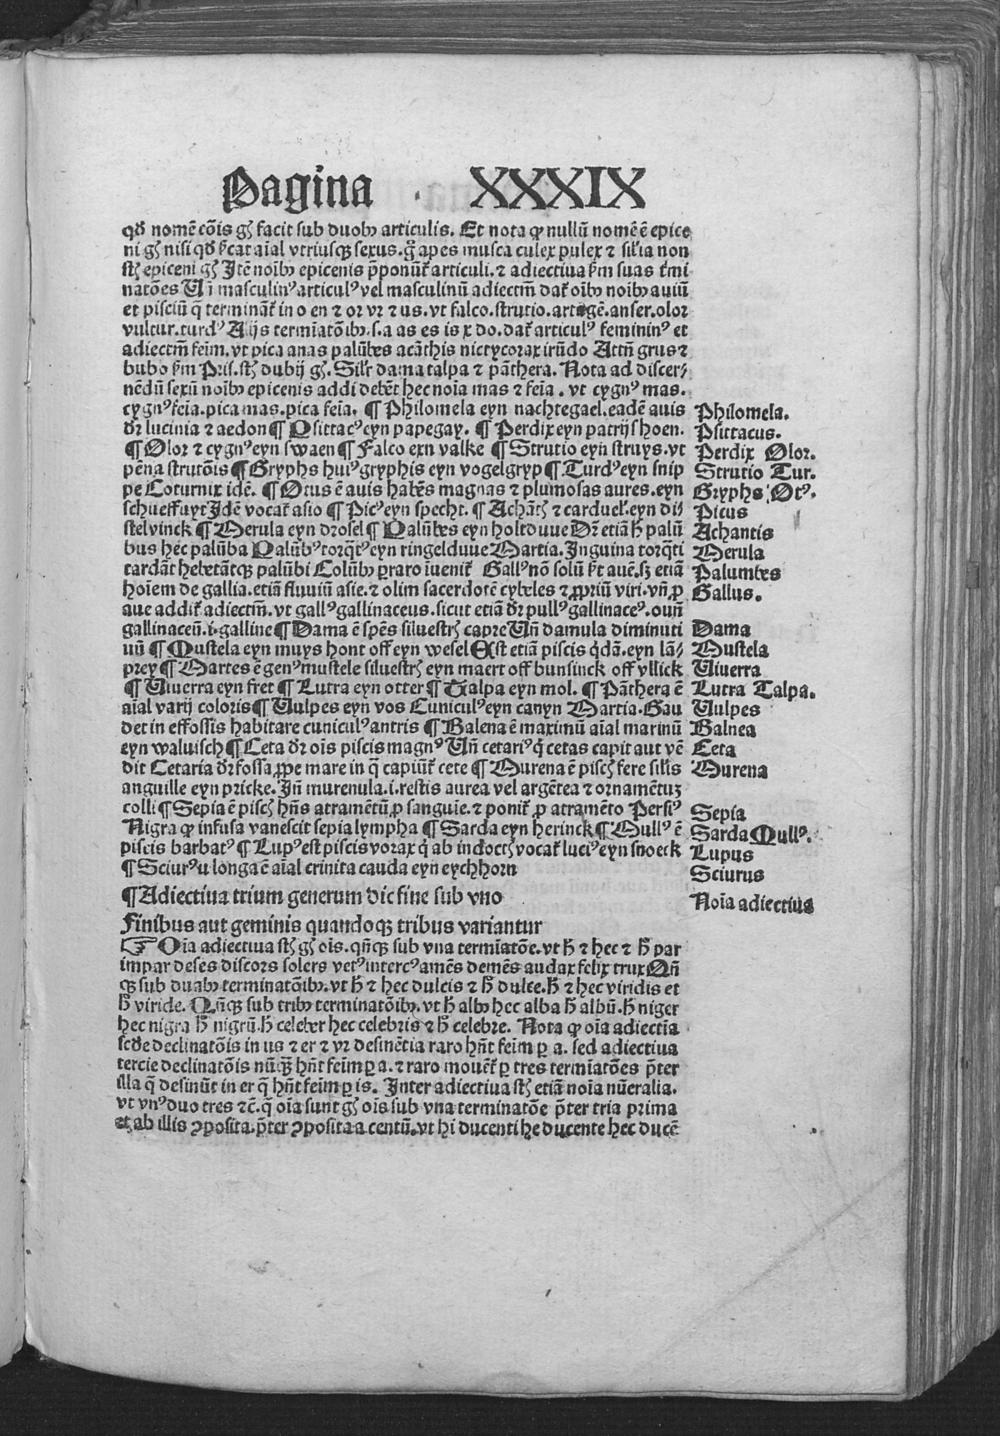 Pagina XXXIX
qđ nomē cōis gñ facit sub duobꝫ articulis. Et nota ꝙ nullū nomē ē epice
ni gñ nisi qđ sͥcat aīal vtriusqꝫ sexus. g̃ apes musca culex pulex ⁊ sil'ia non
st̃ epiceni gñ Itē noībꝫ epicenis p̄ponūt̃ articuli. ⁊ adiectiua ẜm suas t̃mi
natōes Vn̄ masculinꝰ articulꝰ vel masculinū adiectm̄ dat̃ oībꝫ noībꝫ auiū
et pisciū q̄ terminant̃ in o en ⁊ or vr ⁊ us. vt falco. strutio. artagē. anser. olor
vultur. turdꝰ Alijs termīatōibꝫ. s. a as es is x do. dat̃ articulꝰ femininꝰ et
adiectm̄ feīm. vt pica anas palūbes acāthis nicticorax irūdo Attn̄ grus ⁊
bubo ẜm Pris. st̃ dubij gñ. Sil'r dama talpa ⁊ pāthera. Nota ad discer⸗
nēdū sexū noībꝫ epicenis addi debēt hec noīa mas ⁊ feīa. vt cygnꝰ mas.
cygnꝰ feīa. pica mas. pica feīa. ¶ Philomela eyn nachtegael. eadē auis
dr̃ lucinia ⁊ aedon ¶ Psittacꝰ eyn papegay. ¶ Perdix eyn patrijshoen.
¶ Olor ⁊ cygnꝰ eyn swaen ¶ Falco eyn valke ¶ Strutio eyn struys. vt
pēna strutōis ¶ Gryphs huiꝰ gryphis eyn vogelgryp ¶ Turdꝰ eyn snip
pe Coturnix idē. ¶ Otus ē auis habēs magnas ⁊ plumosas aures. eyn
schueffuyt Idē vocat̃ asio ¶ Picꝰ eyn specht. ¶ Achāt̃ ⁊ carduel'. eyn dij
stelvinck ¶ Merula eyn drosel ¶ Palūbes eyn holtduue Dr̃ etiā ħ palū
bus hec palūba Palūbꝰ torq̄tꝰ eyn ringelduue Martia. Inguina torq̄ti
tardāt hebetātqꝫ palūbi Colūbꝫ ꝑraro īuenit̃ Gallꝰ nō solū ẜt auē. sꝫ etiā
hoīem de gallia. etiā fluuiū asie. ⁊ olim sacerdotē cybeles ⁊ ꝓpriū viri. vn̄ ꝓ
aue addit̃ adiectm̄. vt gallꝰ gallinaceus. sicut etiā dr̃ pullꝰ gallinaceꝰ. ouū
gallinaceū. i. galline ¶ Dama ē spēs siluestr̃ capre Vn̄ damula diminuti
uū ¶ Mustela eyn muys hont off eyn wesel Est etiā piscis q̄dā. eyn lā⸗
prey ¶ Martes ē genꝰ mustele siluestr̃ eyn maert off bunsinck off vllick
¶ Viuerra eyn fret ¶ Lutra eyn otter ¶ Talpa eyn mol. ¶ Pāthera ē
aīal varij coloris ¶ Vulpes eyn vos Cuniculꝰ eyn canyn Martia. Gau
det in effossis habitare cuniculꝰ antris ¶ Balena ē maximū aīal marinū
eyn waluisch ¶ Ceta dr̃ oīs piscis magnꝰ Vn̄ cetariꝰ q̇ cetas capit aut vē
dit Cetaria dr̃ fossa ꝓpe mare in q̄ capiūt̃ cete ¶ Murena ē pisc̃ fere sil'is
anguille eyn pricke. Jn̄ murenula. i. restis aurea vel argētea ⁊ ornamētuꝫ
colli ¶ Sepia ē pisc̃ hn̄s atramētū ꝓ sanguīe. ⁊ ponit̃ ꝓ atramēto Persiꝰ
Nigra ꝙ infusa vanescit sepia lympha ¶ Sarda eyn herinck ¶ Mullꝰ ē
piscis barbatꝰ ¶ Lupꝰ est piscis vorax q̇ ab indoct̃ vocat̃ luciꝰ eyn snoeck
¶ Sciurꝰ u longa ē aīal crinita cauda eyn eychhorn
¶ Adiectiua trium generum dic fine sub vno
Finibus aut geminis quandoqꝫ tribus variantur
☞ Oīa adiectiua st̃ gñ oīs. qn̄qꝫ sub vna termīatōe. vt ħ ⁊ hec ⁊ ħ par
impar deses discors solers vetꝰ intercꝰ amēs demēs audax felix trux Qn̄
qꝫ sub duabꝫ terminatōibꝫ. vt ħ ⁊ hec dulcis ⁊ ħ dulce. ħ ⁊ hec viridis et
ħ viride. Qn̄qꝫ sub tribꝫ terminatōibꝫ. vt ħ albꝫ hec alba ħ albū. ħ niger
hec nigra ħ nigrū. ħ celeber hec celebris ⁊ ħ celebre. Nota ꝙ oīa adiectīa
scđe declinatōis in us ⁊ er ⁊ vr desinētia raro hn̄t feīm ꝑ a. sed adiectiua
tercie declinatōis nūqꝫ hn̄t feīm ꝑ a. ⁊ raro mouēt̃ ꝑ tres termīatōes p̄ter
illa q̄ desinūt in er q̄ hn̄t feīm ꝑ is. Inter adiectiua st̃ etiā noīa nūeralia.
vt vnꝰ duo tres ⁊c̄. q̄ oīa sunt gñ oīs sub vna terminatōe p̄ter tria prima
et ab illis ꝯposita. p̄ter ꝯposita a centū. vt hi ducenti he ducente hec ducē
Philomela.
Psittacus.
Perdix Olor.
Strutio Tur.
Gryphs Otꝰ.
Picus
Achantis
Merula
Palumbes
Gallus.
Dama
Mustela
Viuerra
Lutra Talpa.
Vulpes
Balnea
Ceta
Murena
Sepia
Sarda Mullꝰ.
Lupus
Sciurus
Noīa adiectiua